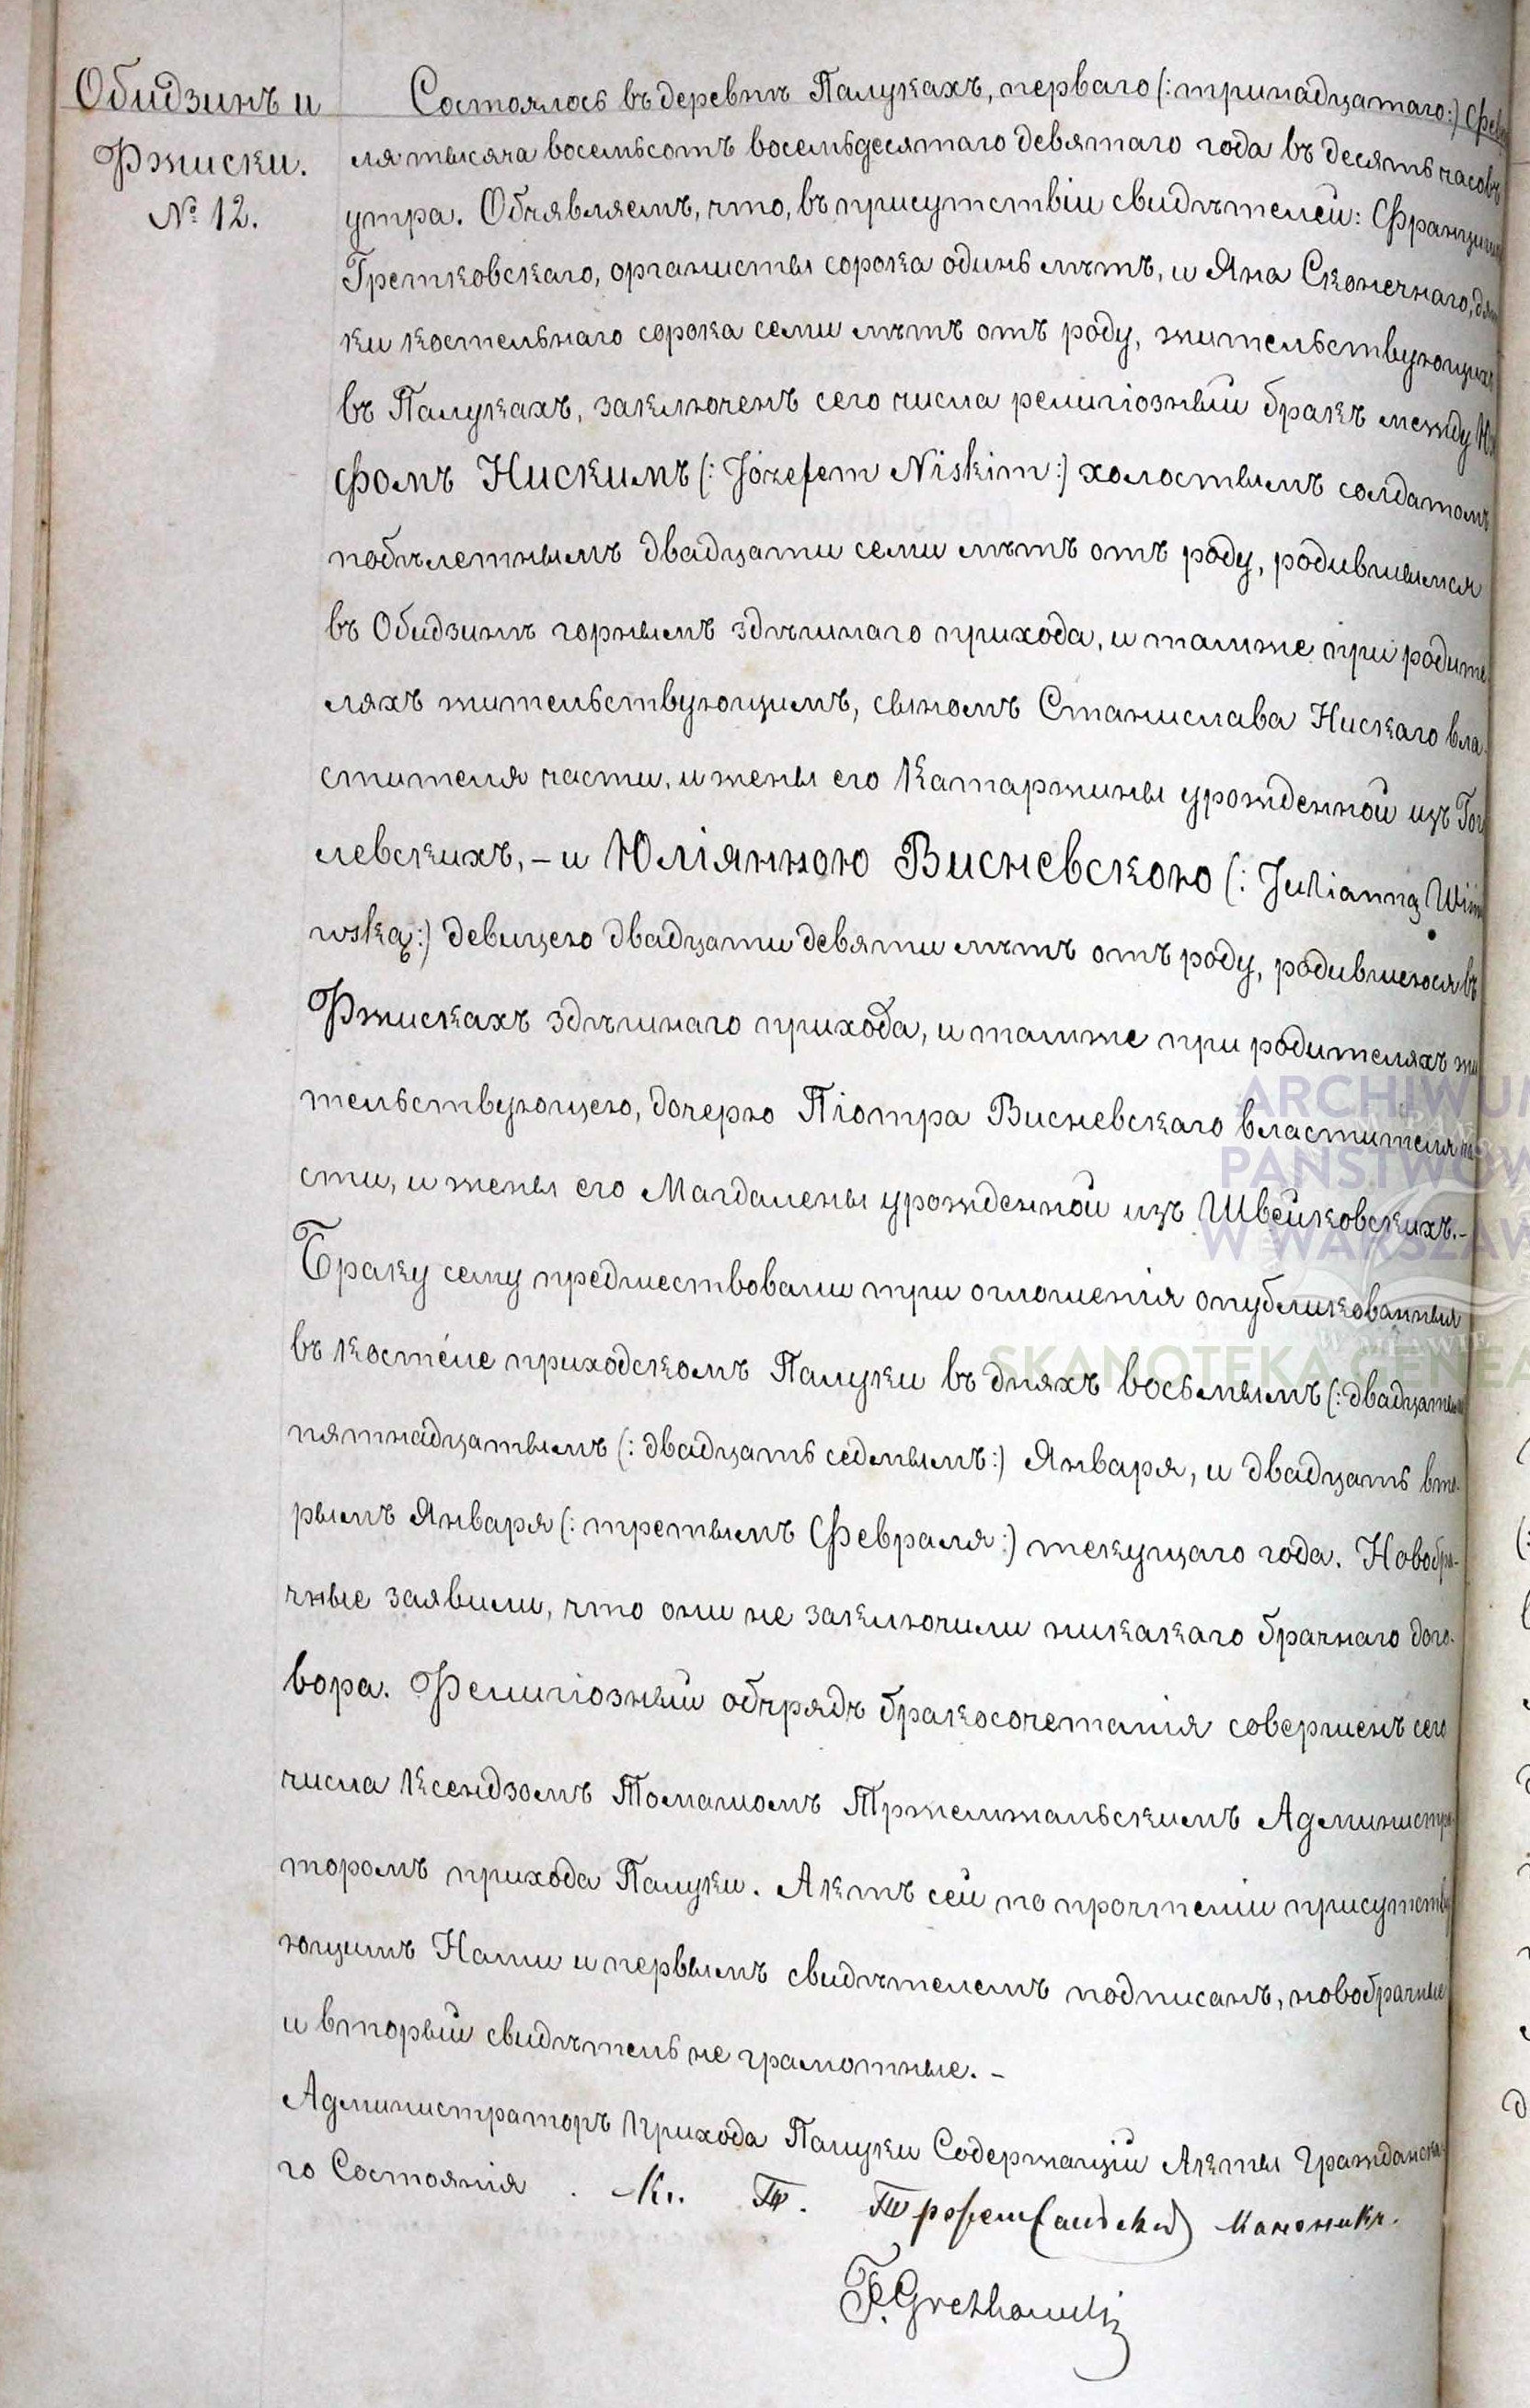 Обидзинъ и
Ржиски.
№ 12.
Состоялось въ деревнѣ Палукахъ, перваго (:тринадцатаго:) Февра
ля тысяча восемьсотъ восемьдесятаго девятаго года въ десять часовъ
утра. Объявляемъ, что, въ присутствіи свидѣтелей: Францишка
Гретковскаго, органисты сорока одинь лѣтъ, и Яна Сконечнаго, дяд
ки костельнаго сорока семи лѣтъ отъ роду, жительствующихъ
въ Палукахъ, заключенъ сего числа религіозный бракъ между Юзе
фомъ Нискимъ (: Józefem Niskim:) холостымъ солдатомъ
побѣлетнымъ двадцати семи лѣтъ отъ роду, родившымся
въ Обидзинѣ горнымъ здѣшнаго прихода, и тамже при родите
ляхъ жительствующимъ, сыномъ Станислава Нискаго вла
стителя части, и жены его Катаржины урожденной изъ Гог
левскихъ, – и Юліянною Висневскою (: Julianną Wiśni
wską:) девицею двадцати девяти лѣтъ отъ роду, родившеюся въ
Ржискахъ здѣшнаго прихода, и тамже при родителяхъ жи
тельствующею, дочерю Піотра Висневскаго властителя ча
сти, и жены его Магдалены урожденной изъ Швейковскихъ.–
Браку сему предшествовали три оглошенія опубликованныя
въ костéле приходскомъ Палуки въ дняхъ восьмымъ (:двадцатым
пятнадцатымъ (: двадцать седмымъ:) Января, и двадцать вто-
рымъ Января (: третымъ Февраля:) текущаго года. Новобра-
чные заявили, что они не заключили никакаго брачнаго дого-
вора. Религіозный обърядъ бракосочетанія совершенъ сего
числа Ксендзомъ Томашомъ Тржемжальскимъ Администра-
торомъ прихода Палуки. Актъ сей по прочтеніи присутству
ющимъ Нами и первымъ свидѣтелемъ подписанъ, новобрачные
и вторый свидѣтель не грамотные. –
Администраторъ Прихода Палуки Содержащій Акты Гражданска-
го Состоянія . Кс. Т. Тржемжальскій Каноникъ.
F. Gretkowski
ARCHIWUM
PAŃSTWOW
W WARSZAW
W MŁAWIE
SKANOTEKA GENEA